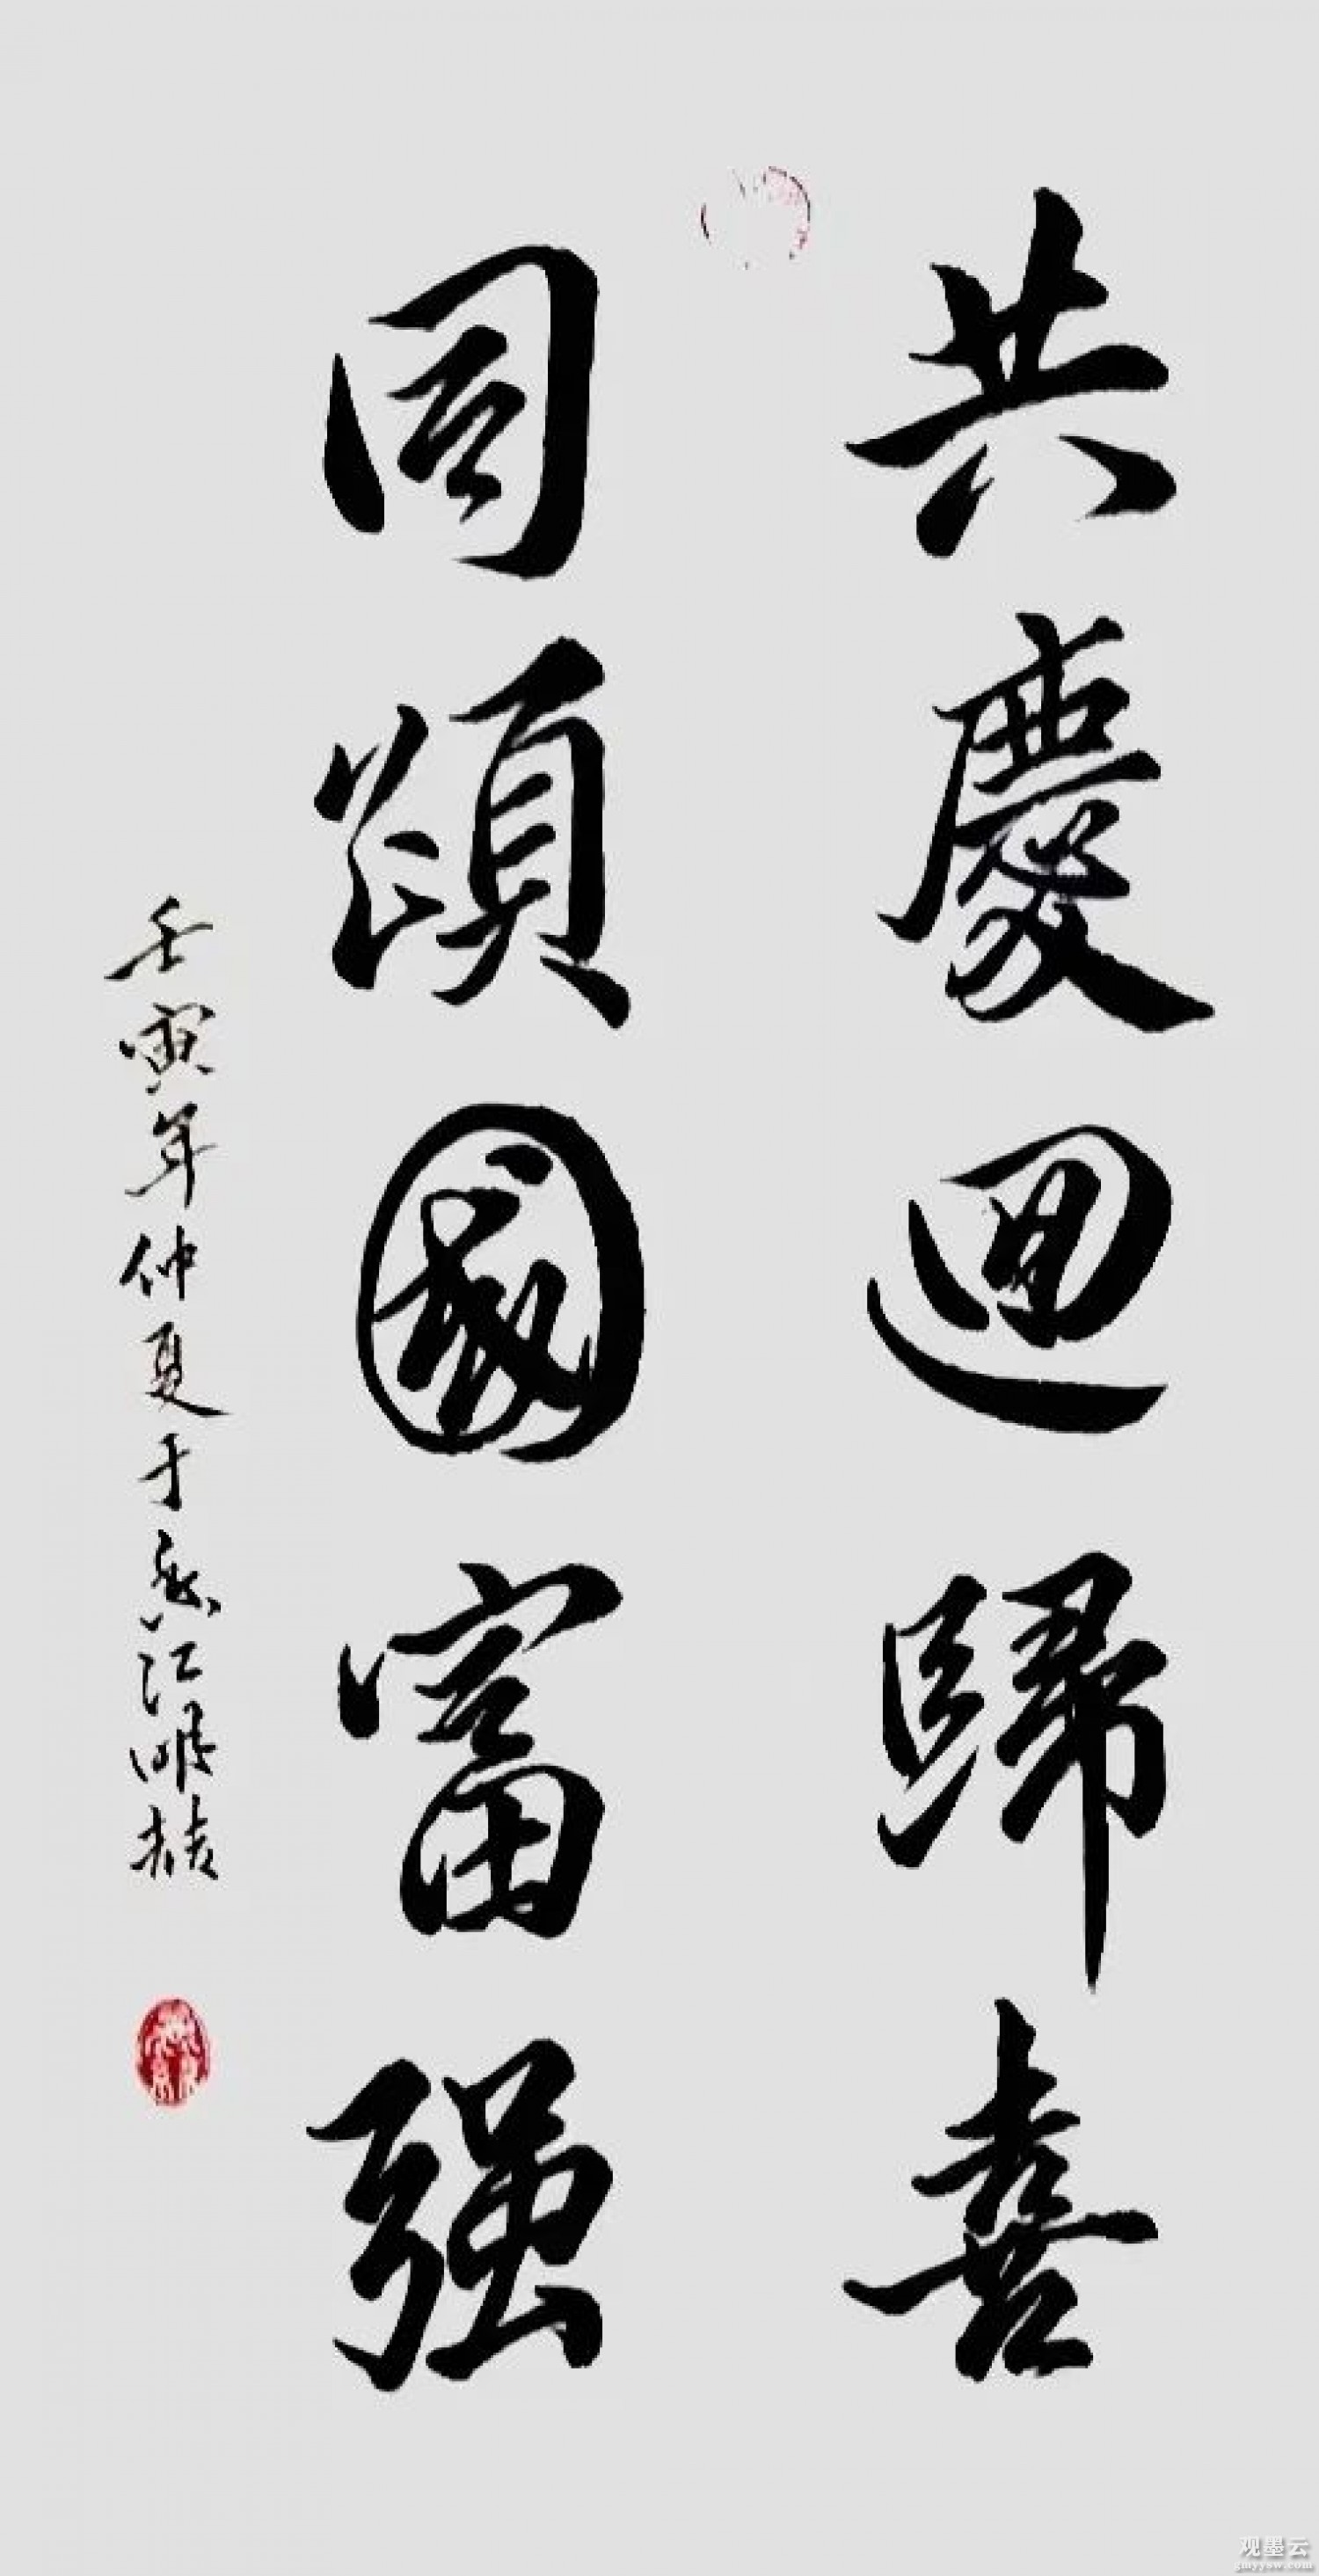 共慶迴歸喜
同頌國富强
壬寅年仲夏于香江明
观墨云
gmyysw.com